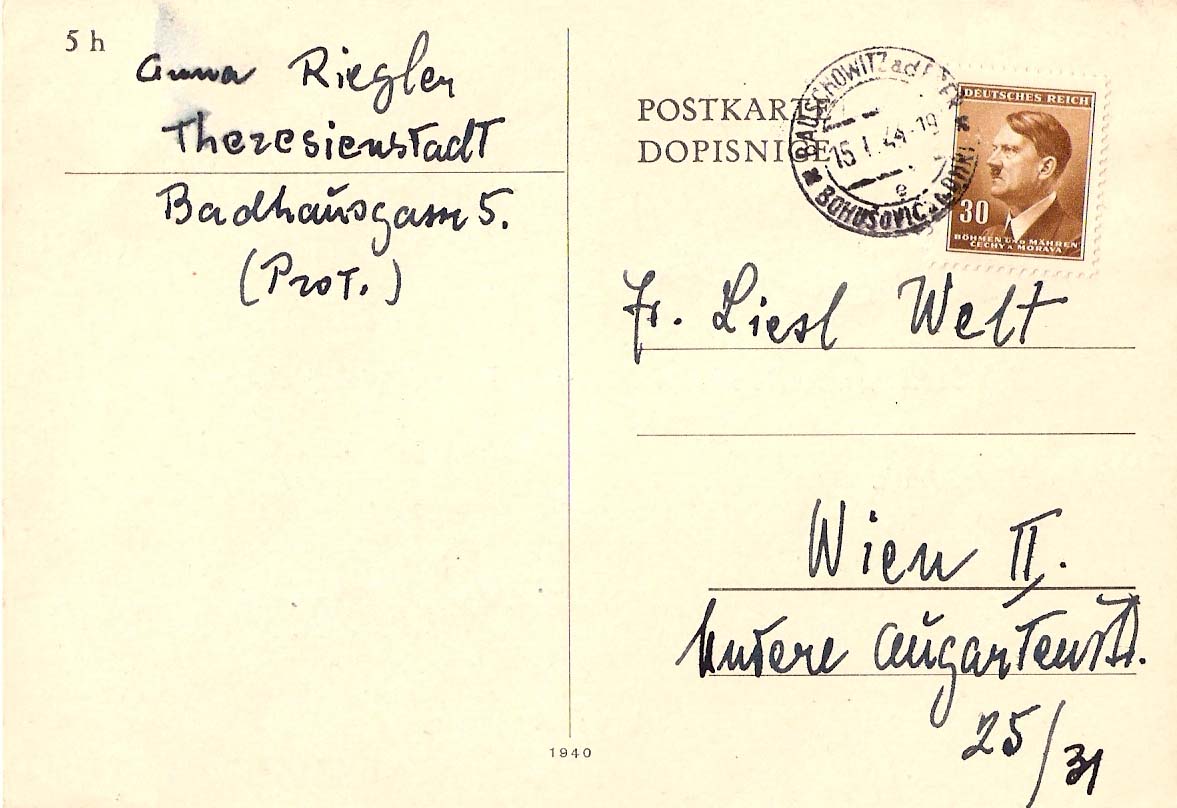 5 h
Anna Riegler
Theresienstadt
Badhausgasse 5.
(Prot.)
POSTKARTE
DOPISNICE
BAUSCHOWITZ a d EGER
15. I. 44-19
e
BOHUŠOVICE
DEUTSCHES REICH
30
BÖHMEN UND MÄHREN
ČECHY A MORAVA
Fr. Liesl Welt
Wien II.
Untere Augartenstr.
25/31
1940